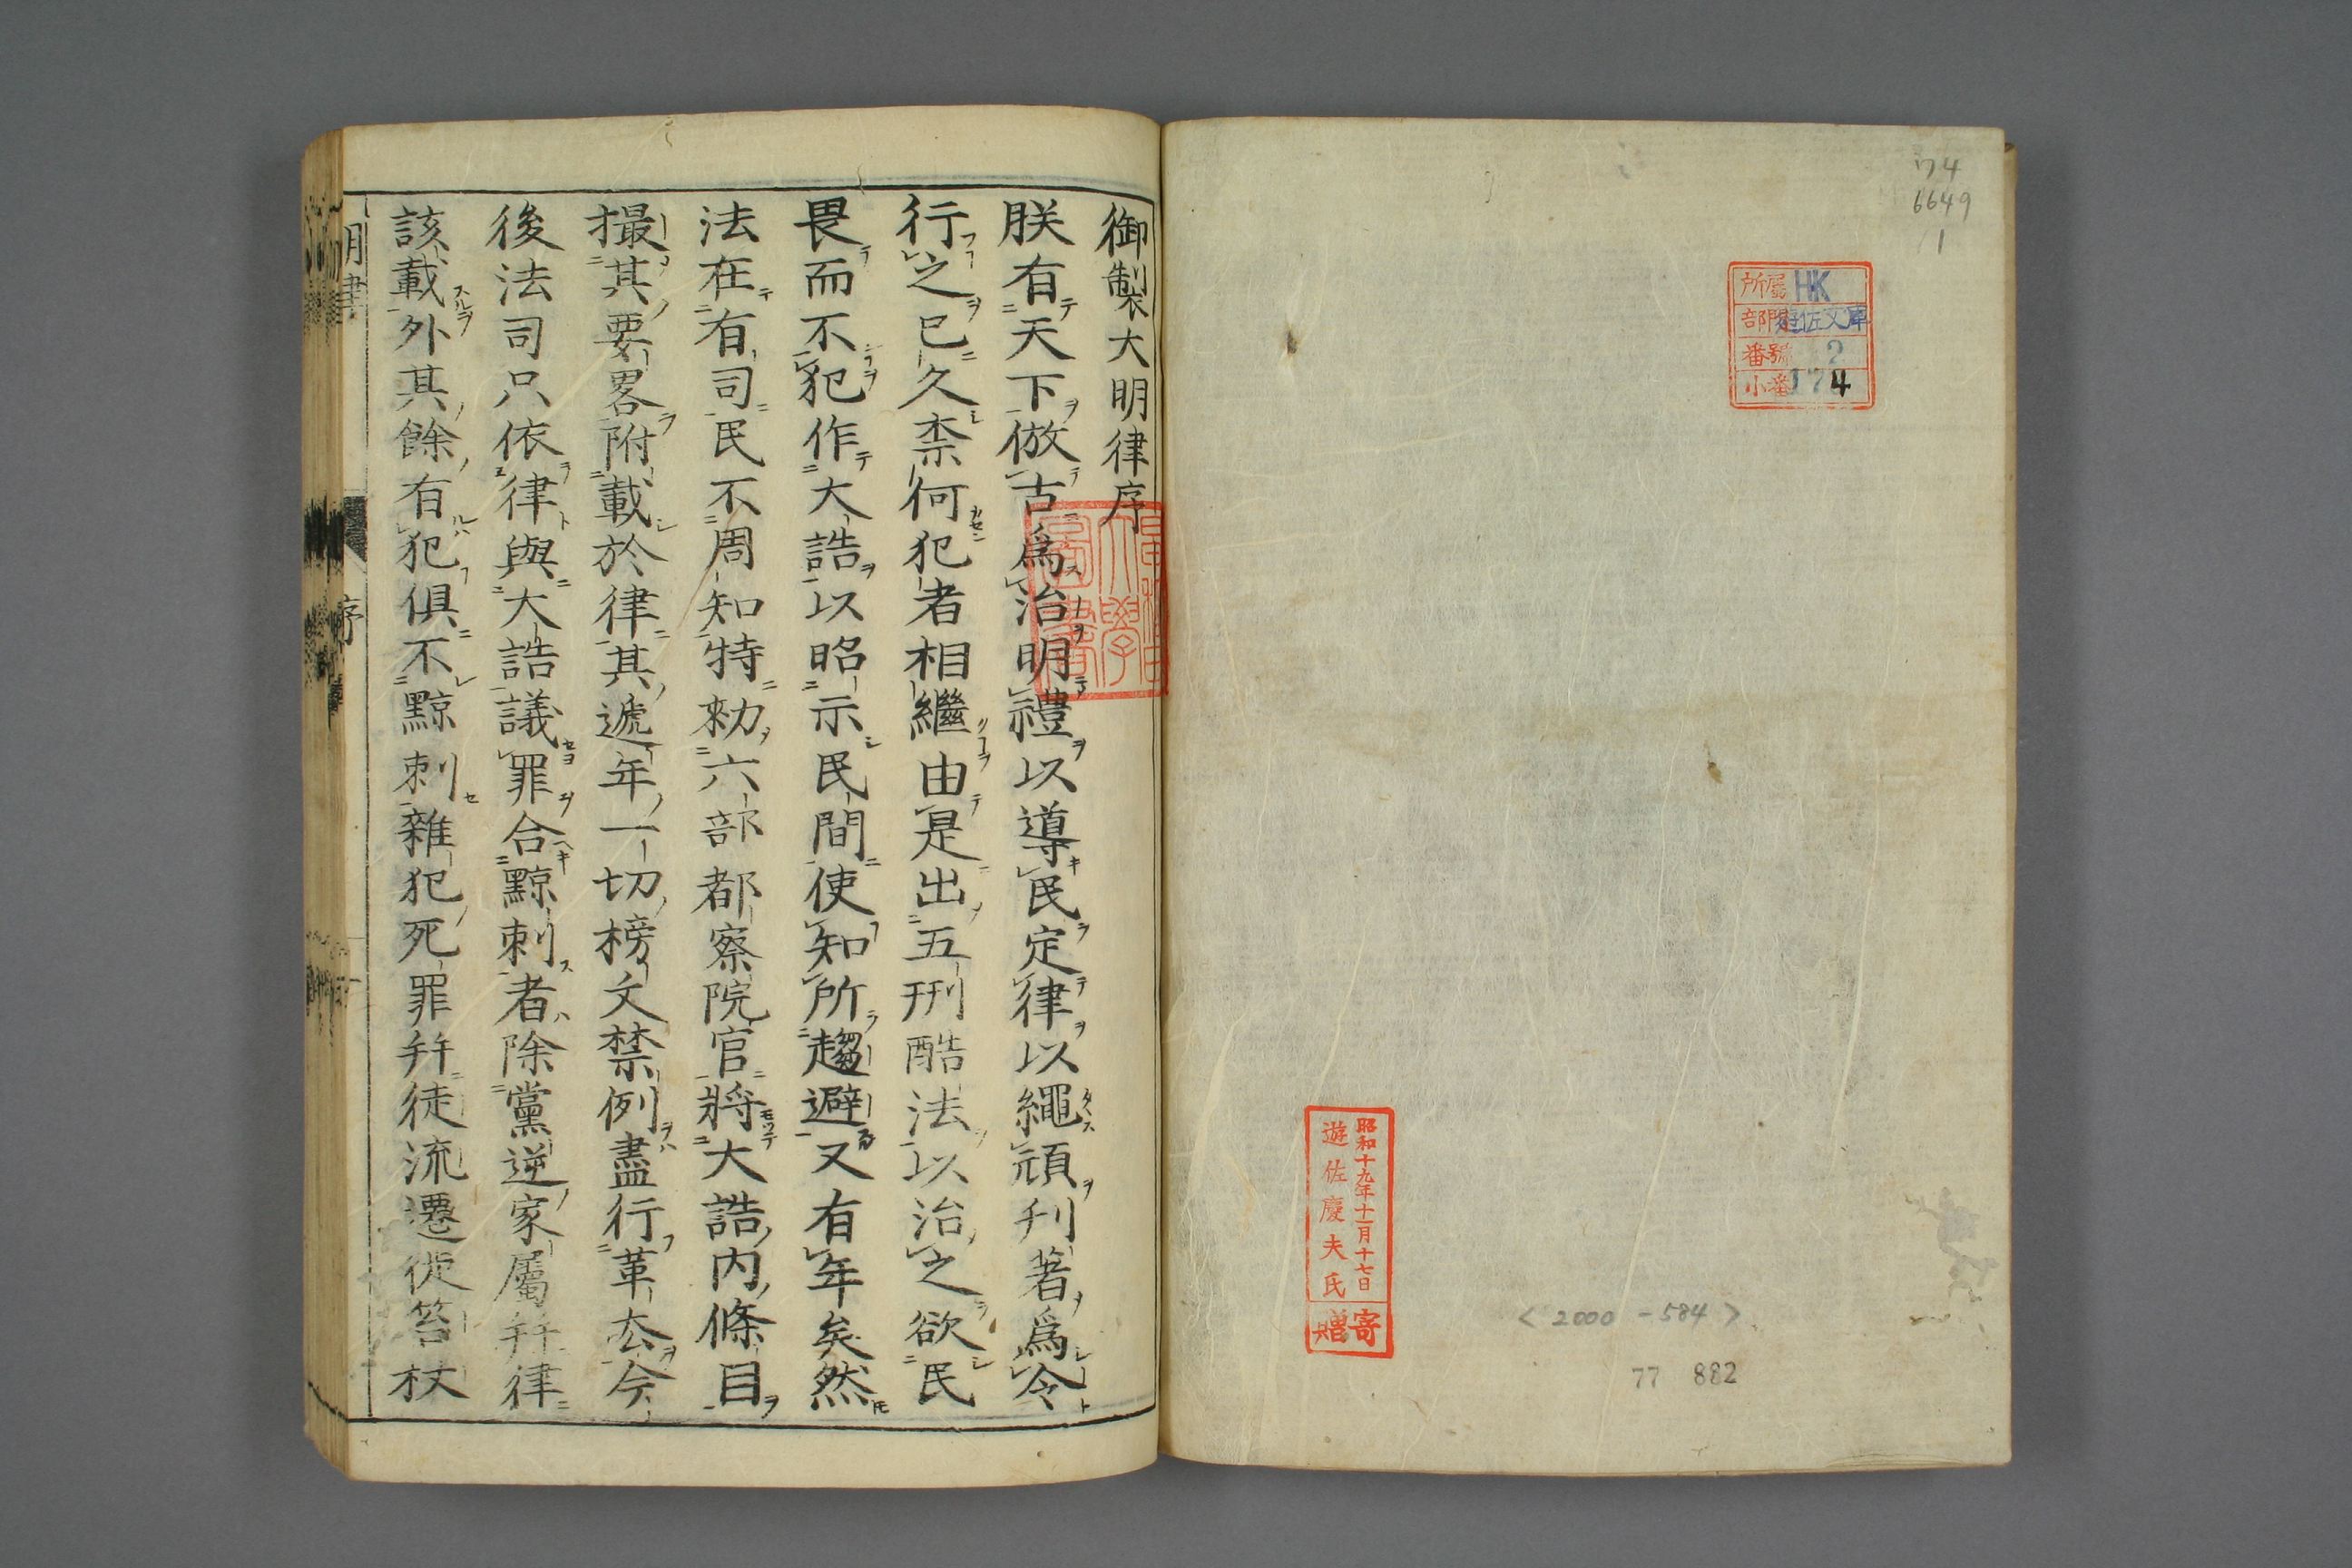 74
6649
1
所屬 HK
部門 遊佐文庫
番號 2
小番 174
昭和十九年十一月十七日
遊佐慶夫氏
寄贈
<2000-584>
77 882
御製大明律序
朕有天下倣古爲治明禮以導民定律以繩頑刋著爲令
行之已久柰何犯者相繼由是出五刑酷法以治之欲民
畏而不犯作大誥以昭示民間使知所趨避又有年矣然
法在有司民不周知特勑六部都察院官將大誥内條目
撮其要畧附載於律其遞年一切榜文禁例盡行革去今
後法司只依律與大誥議罪合黥刺者除黨逆家屬幷律
該載外其餘有犯俱不黥刺雜犯死罪幷徒流遷徙笞杖
明律
序